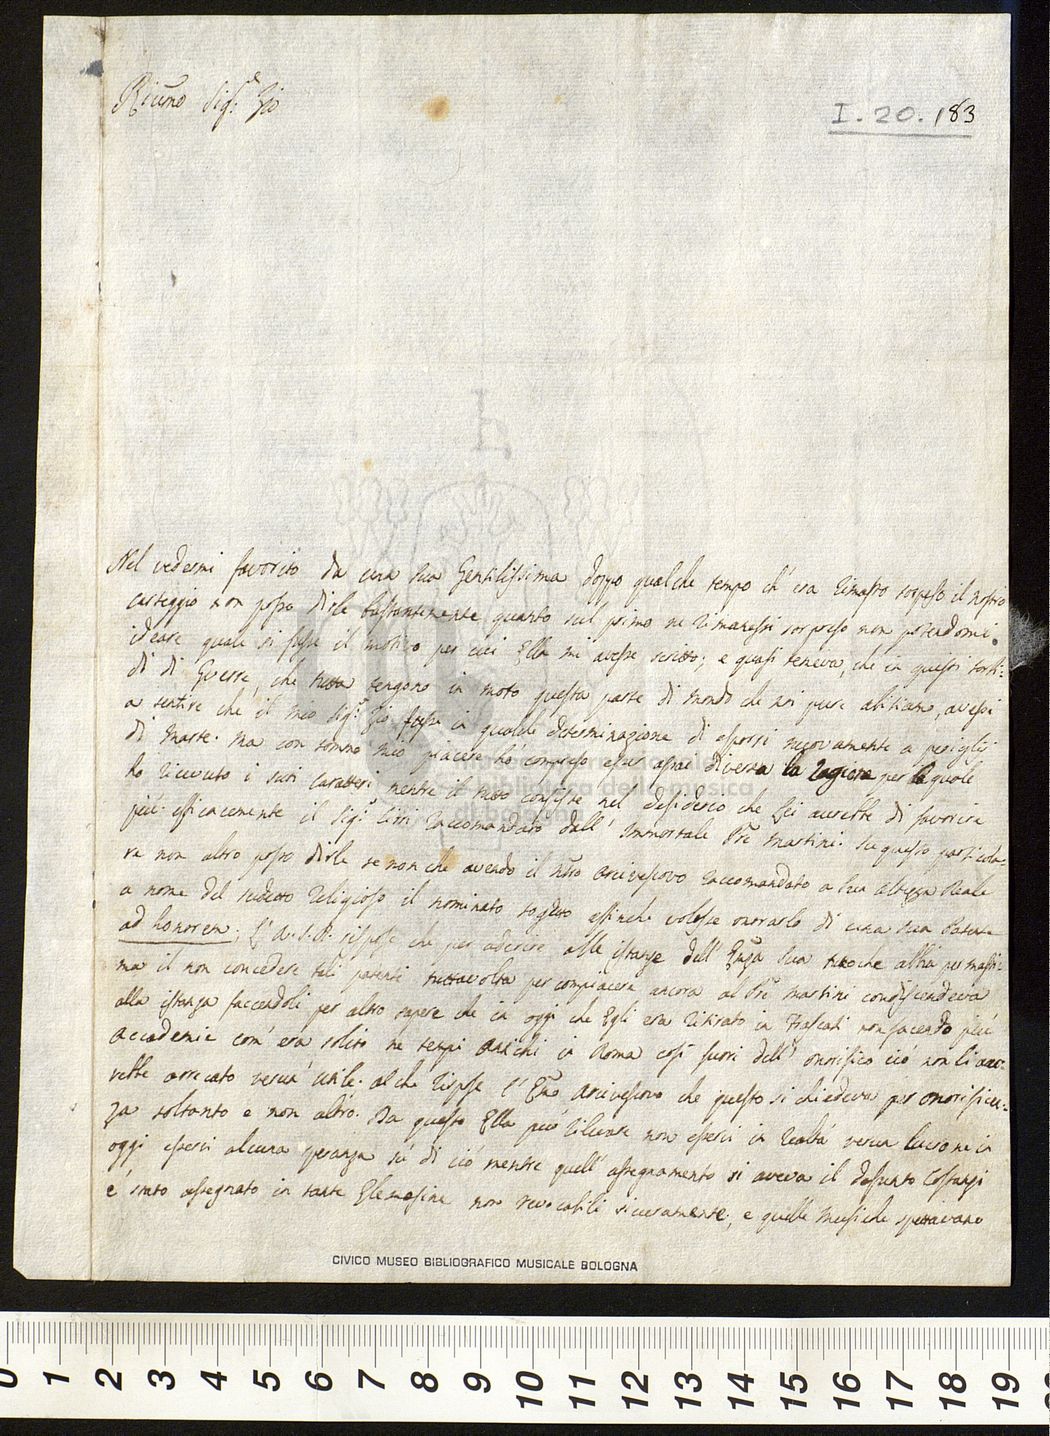 Sig.r Zio
I. 20. 183
Nel vedermi favorito da una sua Gentilissima doppo qualche tempo ch'era rimasto sospeso il nostro
carteggio non posso dirle bastantemente quanto sul primo ne rimanessi sorpreso non potendomi
ideare quale si fosse il motivo per cui Ella mi avesse scritto; e quasi temeva, che in questi torbi-
di di Guerre, che tutta tengono in moto questa parte di Mondo che noi pure abitiamo, avessi
a sentire che il mio Sig.r Zio fosse in qualche determinazione di esporsi nuovamente a perigli
di Marte. Ma con sommo mio piacere hò compreso esser assai diversa la ragione per la quale
ho ricevuto i suoi caratteri mentre il tutto consiste nel desiderio che Lei averebbe di favorire
più efficacemente il Sig.r raccomandato dall' Immortale Pre Martini. Su questo particola-
re non altro posso dirle se non che avendo il Nro Arcivescovo raccomandato a Sua Altezza Reale
a nome del sudetto Religioso il nominato sogetto affinche volesse onorarlo di una sua Patente
ad honorem; l'A.S.R. rispose che per aderire alle istanze dell' Emza Sua tutto che abbia per massi-
ma il non concedere tali patenti tuttavolta per compiacere ancora al Pre Martini condiscendeva
alla istanza facendoli per altro sapere che in oggi che Egli era ritirato in Frascati non facendo più
Accademie com' era solito ne tempi antichi in Roma così fuori dell' onorifico ciò non li avr-
rebbe arrecato verun' utile. Al che rispose l' Emo Arcivescovo che questo si chiedeva per onorificen-
za soltanto e non altro. Da questo Ella può rilevare non esservi in realtà verun lucro ne in
oggi esservi alcuna speranza sù di ciò mentre quell' assegnamento si aveva il defunto Costanzi
è stato assegnato in tante Elemosine non revocabili sicuramente; e quelle Musiche spettavano
CIVICO MUSEO BIBLIOGRAFICO MUSICALE BOLOGNA
biblioteca della musica
di bologna
0 1 2 3 4 5 6 7 8 9 10 11 12 13 14 15 16 17 18 19